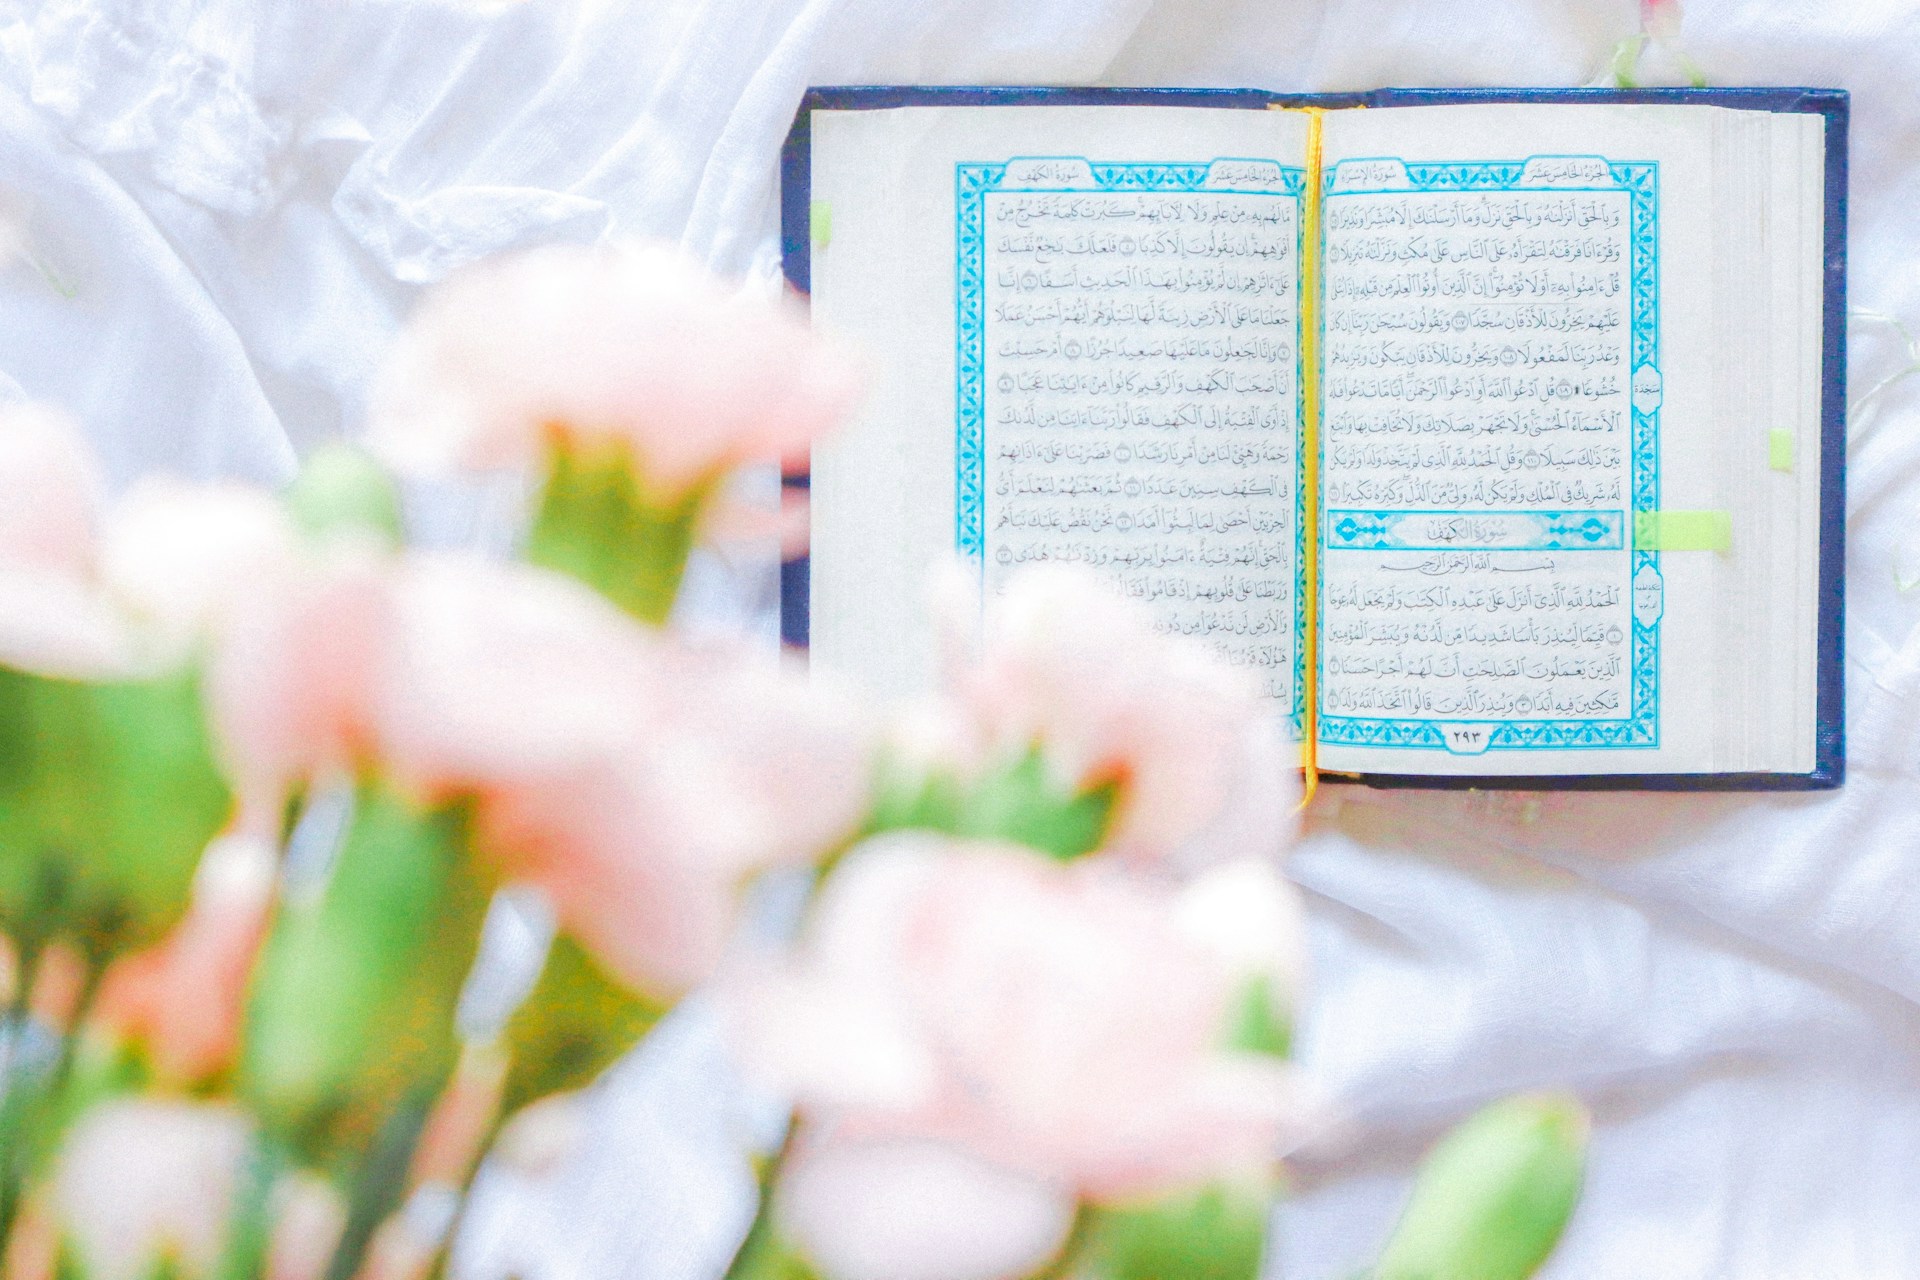 سُورَةُ الإِسْرَاء
الجُزْءُ الخَامِسَ عَشَرَ
وَبِالْحَقِّ أَنزَلْنَٰهُ وَبِالْحَقِّ نَزَلَ وَمَا أَرْسَلْنَٰكَ إِلَّا مُبَشِّرًا وَنَذِيرًا ١٠٥
وَقُرْءَانًا فَرَقْنَٰهُ لِتَقْرَأَهُۥ عَلَى ٱلنَّاسِ عَلَىٰ مُكْثٍ وَنَزَّلْنَٰهُ تَنزِيلًا ١٠٦
قُلْ ءَامِنُوا۟ بِهِۦٓ أَوْ لَا تُؤْمِنُوٓا۟ إِنَّ ٱلَّذِينَ أُوتُوا۟ ٱلْعِلْمَ مِن قَبْلِهِۦٓ إِذَا يُتْلَىٰ
عَلَيْهِمْ يَخِرُّونَ لِلْأَذْقَانِ سُجَّدًا ١٠٧ وَيَقُولُونَ سُبْحَٰنَ رَبِّنَآ إِن كَانَ
وَعْدُ رَبِّنَا لَمَفْعُولًا ١٠٨ وَيَخِرُّونَ لِلْأَذْقَانِ يَبْكُونَ وَيَزِيدُهُمْ
خُشُوعًا ۩ ١٠٩ قُلِ ٱدْعُوا۟ ٱللَّهَ أَوِ ٱدْعُوا۟ ٱلرَّحْمَٰنَ أَيًّا مَّا تَدْعُوا۟ فَلَهُ
سَجْدَة
ٱلْأَسْمَآءُ ٱلْحُسْنَىٰ وَلَا تَجْهَرْ بِصَلَاتِكَ وَلَا تُخَافِتْ بِهَا وَٱبْتَغِ
بَيْنَ ذَٰلِكَ سَبِيلًا ١١٠ وَقُلِ ٱلْحَمْدُ لِلَّهِ ٱلَّذِى لَمْ يَتَّخِذْ وَلَدًا وَلَمْ يَكُن
لَّهُۥ شَرِيكٌ فِى ٱلْمُلْكِ وَلَمْ يَكُن لَّهُۥ وَلِىٌّ مِّنَ ٱلذُّلِّ وَكَبِّرْهُ تَكْبِيرًا ١١١
سُورَةُ الكَهْفِ
بِسْمِ ٱللَّهِ ٱلرَّحْمَٰنِ ٱلرَّحِيمِ
ٱلْحَمْدُ لِلَّهِ ٱلَّذِىٓ أَنزَلَ عَلَىٰ عَبْدِهِ ٱلْكِتَٰبَ وَلَمْ يَجْعَل لَّهُۥ عِوَجَا ١
قَيِّمًا لِّيُنذِرَ بَأْسًا شَدِيدًا مِّن لَّدُنْهُ وَيُبَشِّرَ ٱلْمُؤْمِنِينَ
ٱلَّذِينَ يَعْمَلُونَ ٱلصَّٰلِحَٰتِ أَنَّ لَهُمْ أَجْرًا حَسَنًا ٢
مَّٰكِثِينَ فِيهِ أَبَدًا ٣ وَيُنذِرَ ٱلَّذِينَ قَالُوا۟ ٱتَّخَذَ ٱللَّهُ وَلَدًا ٤
٢٩٣
الجُزْءُ الخَامِسَ عَشَرَ
سُورَةُ الكَهْفِ
مَّا لَهُم بِهِۦ مِنْ عِلْمٍ وَلَا لِءَابَآئِهِمْ كَبُرَتْ كَلِمَةً تَخْرُجُ مِنْ
أَفْوَٰهِهِمْ إِن يَقُولُونَ إِلَّا كَذِبًا ٥ فَلَعَلَّكَ بَٰخِعٌ نَّفْسَكَ
عَلَىٰٓ ءَاثَٰرِهِمْ إِن لَّمْ يُؤْمِنُوا۟ بِهَٰذَا ٱلْحَدِيثِ أَسَفًا ٦ إِنَّا
جَعَلْنَا مَا عَلَى ٱلْأَرْضِ زِينَةً لَّهَا لِنَبْلُوَهُمْ أَيُّهُمْ أَحْسَنُ عَمَلًا
٧ وَإِنَّا لَجَٰعِلُونَ مَا عَلَيْهَا صَعِيدًا جُرُزًا ٨ أَمْ حَسِبْتَ
أَنَّ أَصْحَٰبَ ٱلْكَهْفِ وَٱلرَّقِيمِ كَانُوا۟ مِنْ ءَايَٰتِنَا عَجَبًا ٩
إِذْ أَوَى ٱلْفِتْيَةُ إِلَى ٱلْكَهْفِ فَقَالُوا۟ رَبَّنَآ ءَاتِنَا مِن لَّدُنكَ
رَحْمَةً وَهَيِّئْ لَنَا مِنْ أَمْرِنَا رَشَدًا ١٠ فَضَرَبْنَا عَلَىٰٓ ءَاذَانِهِمْ
فِى ٱلْكَهْفِ سِنِينَ عَدَدًا ١١ ثُمَّ بَعَثْنَٰهُمْ لِنَعْلَمَ أَىُّ
ٱلْحِزْبَيْنِ أَحْصَىٰ لِمَا لَبِثُوٓا۟ أَمَدًا ١٢ نَّحْنُ نَقُصُّ عَلَيْكَ نَبَأَهُم
بِٱلْحَقِّ إِنَّهُمْ فِتْيَةٌ ءَامَنُوا۟ بِرَبِّهِمْ وَزِدْنَٰهُمْ هُدًى ١٣
وَرَبَطْنَا عَلَىٰ قُلُوبِهِمْ إِذْ قَامُوا۟ فَقَالُوا۟
وَٱلْأَرْضِ لَن نَّدْعُوَا۟ مِن دُونِهِۦٓ
هَٰٓؤُلَآءِ قَوْمُنَا